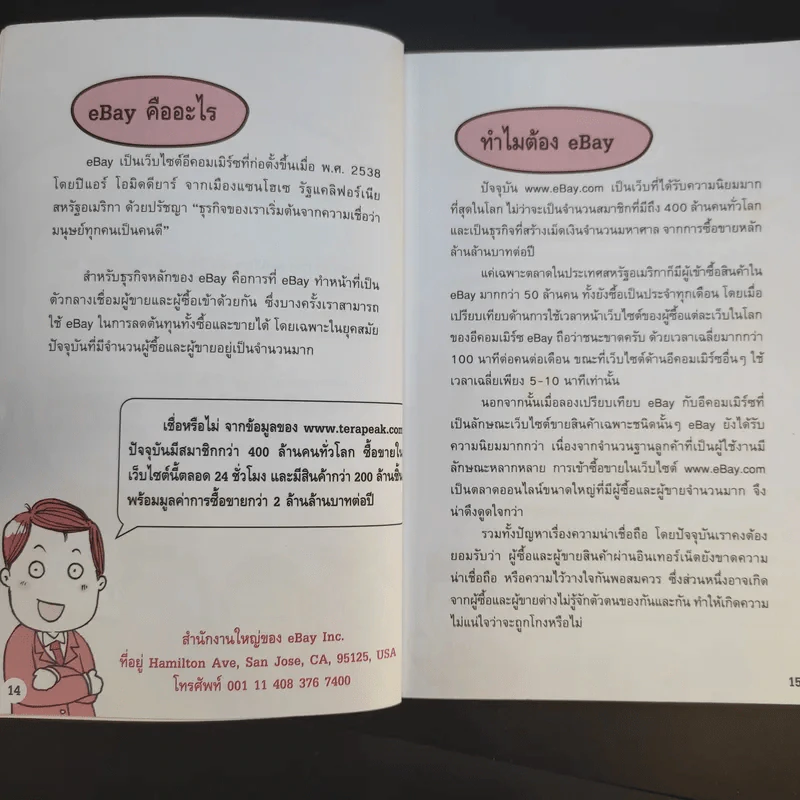 eBay คืออะไร
eBay เป็นเว็บไซต์อีคอมเมิร์ซที่ก่อตั้งขึ้นเมื่อ พ.ศ. 2538
โดยปีแอร์ โอมิดดียาร์ จากเมืองแซนโฮเซ รัฐแคลิฟอร์เนีย
สหรัฐอเมริกา ด้วยปรัชญา "ธุรกิจของเราเริ่มต้นจากความเชื่อว่า
มนุษย์ทุกคนเป็นคนดี"
สำหรับธุรกิจหลักของ eBay คือการที่ eBay ทำหน้าที่เป็น
ตัวกลางเชื่อมผู้ขายและผู้ซื้อเข้าด้วยกัน ซึ่งบางครั้งเราสามารถ
ใช้ eBay ในการลดต้นทุนทั้งซื้อและขายได้ โดยเฉพาะในยุคสมัย
ปัจจุบันที่มีจำนวนผู้ซื้อและผู้ขายอยู่เป็นจำนวนมาก
เชื่อหรือไม่ จากข้อมูลของ www.terapeak.com
ปัจจุบันมีสมาชิกกว่า 400 ล้านคนทั่วโลก ซื้อขายใน
เว็บไซต์นี้ตลอด 24 ชั่วโมง และมีสินค้ากว่า 200 ล้านชิ้น
พร้อมมูลค่าการซื้อขายกว่า 2 ล้านล้านบาทต่อปี
สำนักงานใหญ่ของ eBay Inc.
ที่อยู่ Hamilton Ave, San Jose, CA, 95125, USA
โทรศัพท์ 001 11 408 376 7400
14
ทำไมต้อง eBay
ปัจจุบัน www.eBay.com เป็นเว็บที่ได้รับความนิยมมาก
ที่สุดในโลก ไม่ว่าจะเป็นจำนวนสมาชิกที่มีถึง 400 ล้านคนทั่วโลก
และเป็นธุรกิจที่สร้างเม็ดเงินจำนวนมหาศาล จากการซื้อขายหลัก
ล้านล้านบาทต่อปี
แค่เฉพาะตลาดในประเทศสหรัฐอเมริกาก็มีผู้เข้าซื้อสินค้าใน
eBay มากกว่า 50 ล้านคน ทั้งยังซื้อเป็นประจำทุกเดือน โดยเมื่อ
เปรียบเทียบด้านการใช้เวลาหน้าเว็บไซต์ของผู้ซื้อแต่ละเว็บในโลก
ของอีคอมเมิร์ซ eBay ถือว่าชนะขาดครับ ด้วยเวลาเฉลี่ยมากกว่า
100 นาทีต่อคนต่อเดือน ขณะที่เว็บไซต์ด้านอีคอมเมิร์ซอื่นๆ ใช้
เวลาเฉลี่ยเพียง 5-10 นาทีเท่านั้น
นอกจากนั้นเมื่อลองเปรียบเทียบ eBay กับอีคอมเมิร์ซที่
เป็นลักษณะเว็บไซต์ขายสินค้าเฉพาะชนิดนั้นๆ eBay ยังได้รับ
ความนิยมมากกว่า เนื่องจากจำนวนฐานลูกค้าที่เป็นผู้ใช้งานมี
ลักษณะหลากหลาย การเข้าซื้อขายในเว็บไซต์ www.eBay.com
เป็นตลาดออนไลน์ขนาดใหญ่ที่มีผู้ซื้อและผู้ขายจำนวนมาก จึง
น่าดึงดูดใจกว่า
รวมทั้งปัญหาเรื่องความน่าเชื่อถือ โดยปัจจุบันเราคงต้อง
ยอมรับว่า ผู้ซื้อและผู้ขายสินค้าผ่านอินเทอร์เน็ตยังขาดความ
น่าเชื่อถือ หรือความไว้วางใจกันพอสมควร ซึ่งส่วนหนึ่งอาจเกิด
จากผู้ซื้อและผู้ขายต่างไม่รู้จักตัวตนของกันและกัน ทำให้เกิดความ
ไม่แน่ใจว่าจะถูกโกงหรือไม่
15